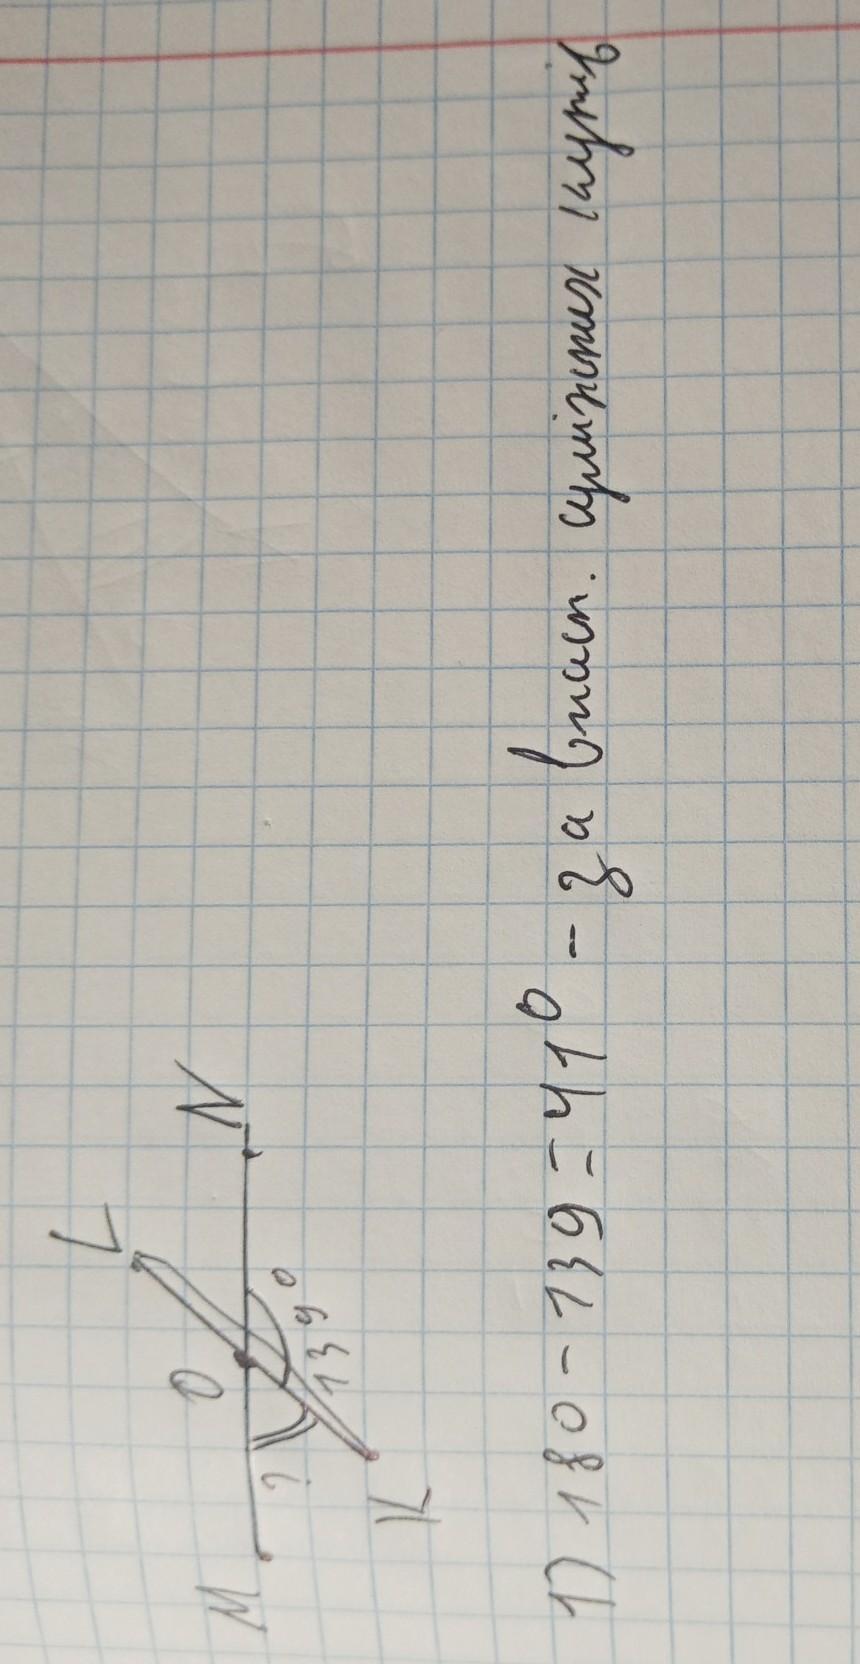 L
O
M N
?
139°
K
1) 180 - 139 = 41° - за власт. суміжних кутів